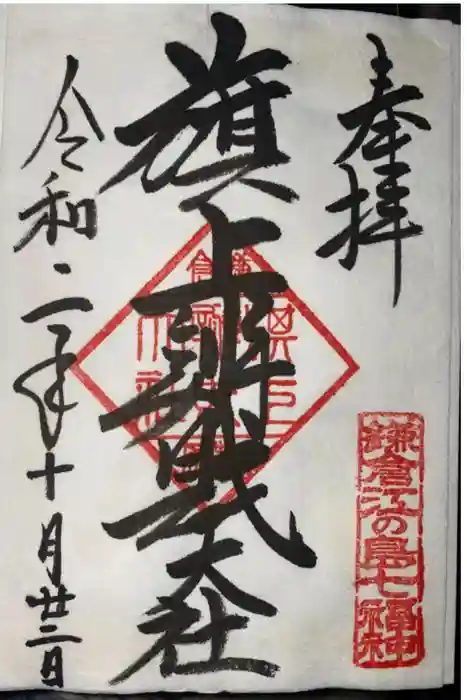 奉拝
旗上辨財天社
令和二年十月廿三日
鎌倉江の島七福神